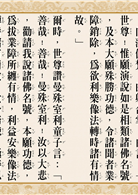 世尊！惟願演說如是相類諸佛名號，
及本大願殊勝功德，令諸聞者業
障銷除，為欲利樂像法轉時諸有情
故。」
爾時，世尊讚曼殊室利童子言：「善
哉！善哉！曼殊室利，汝以大悲
勸請我說諸佛名號，本願功德，
為拔業障所纏有情，利益安樂像法